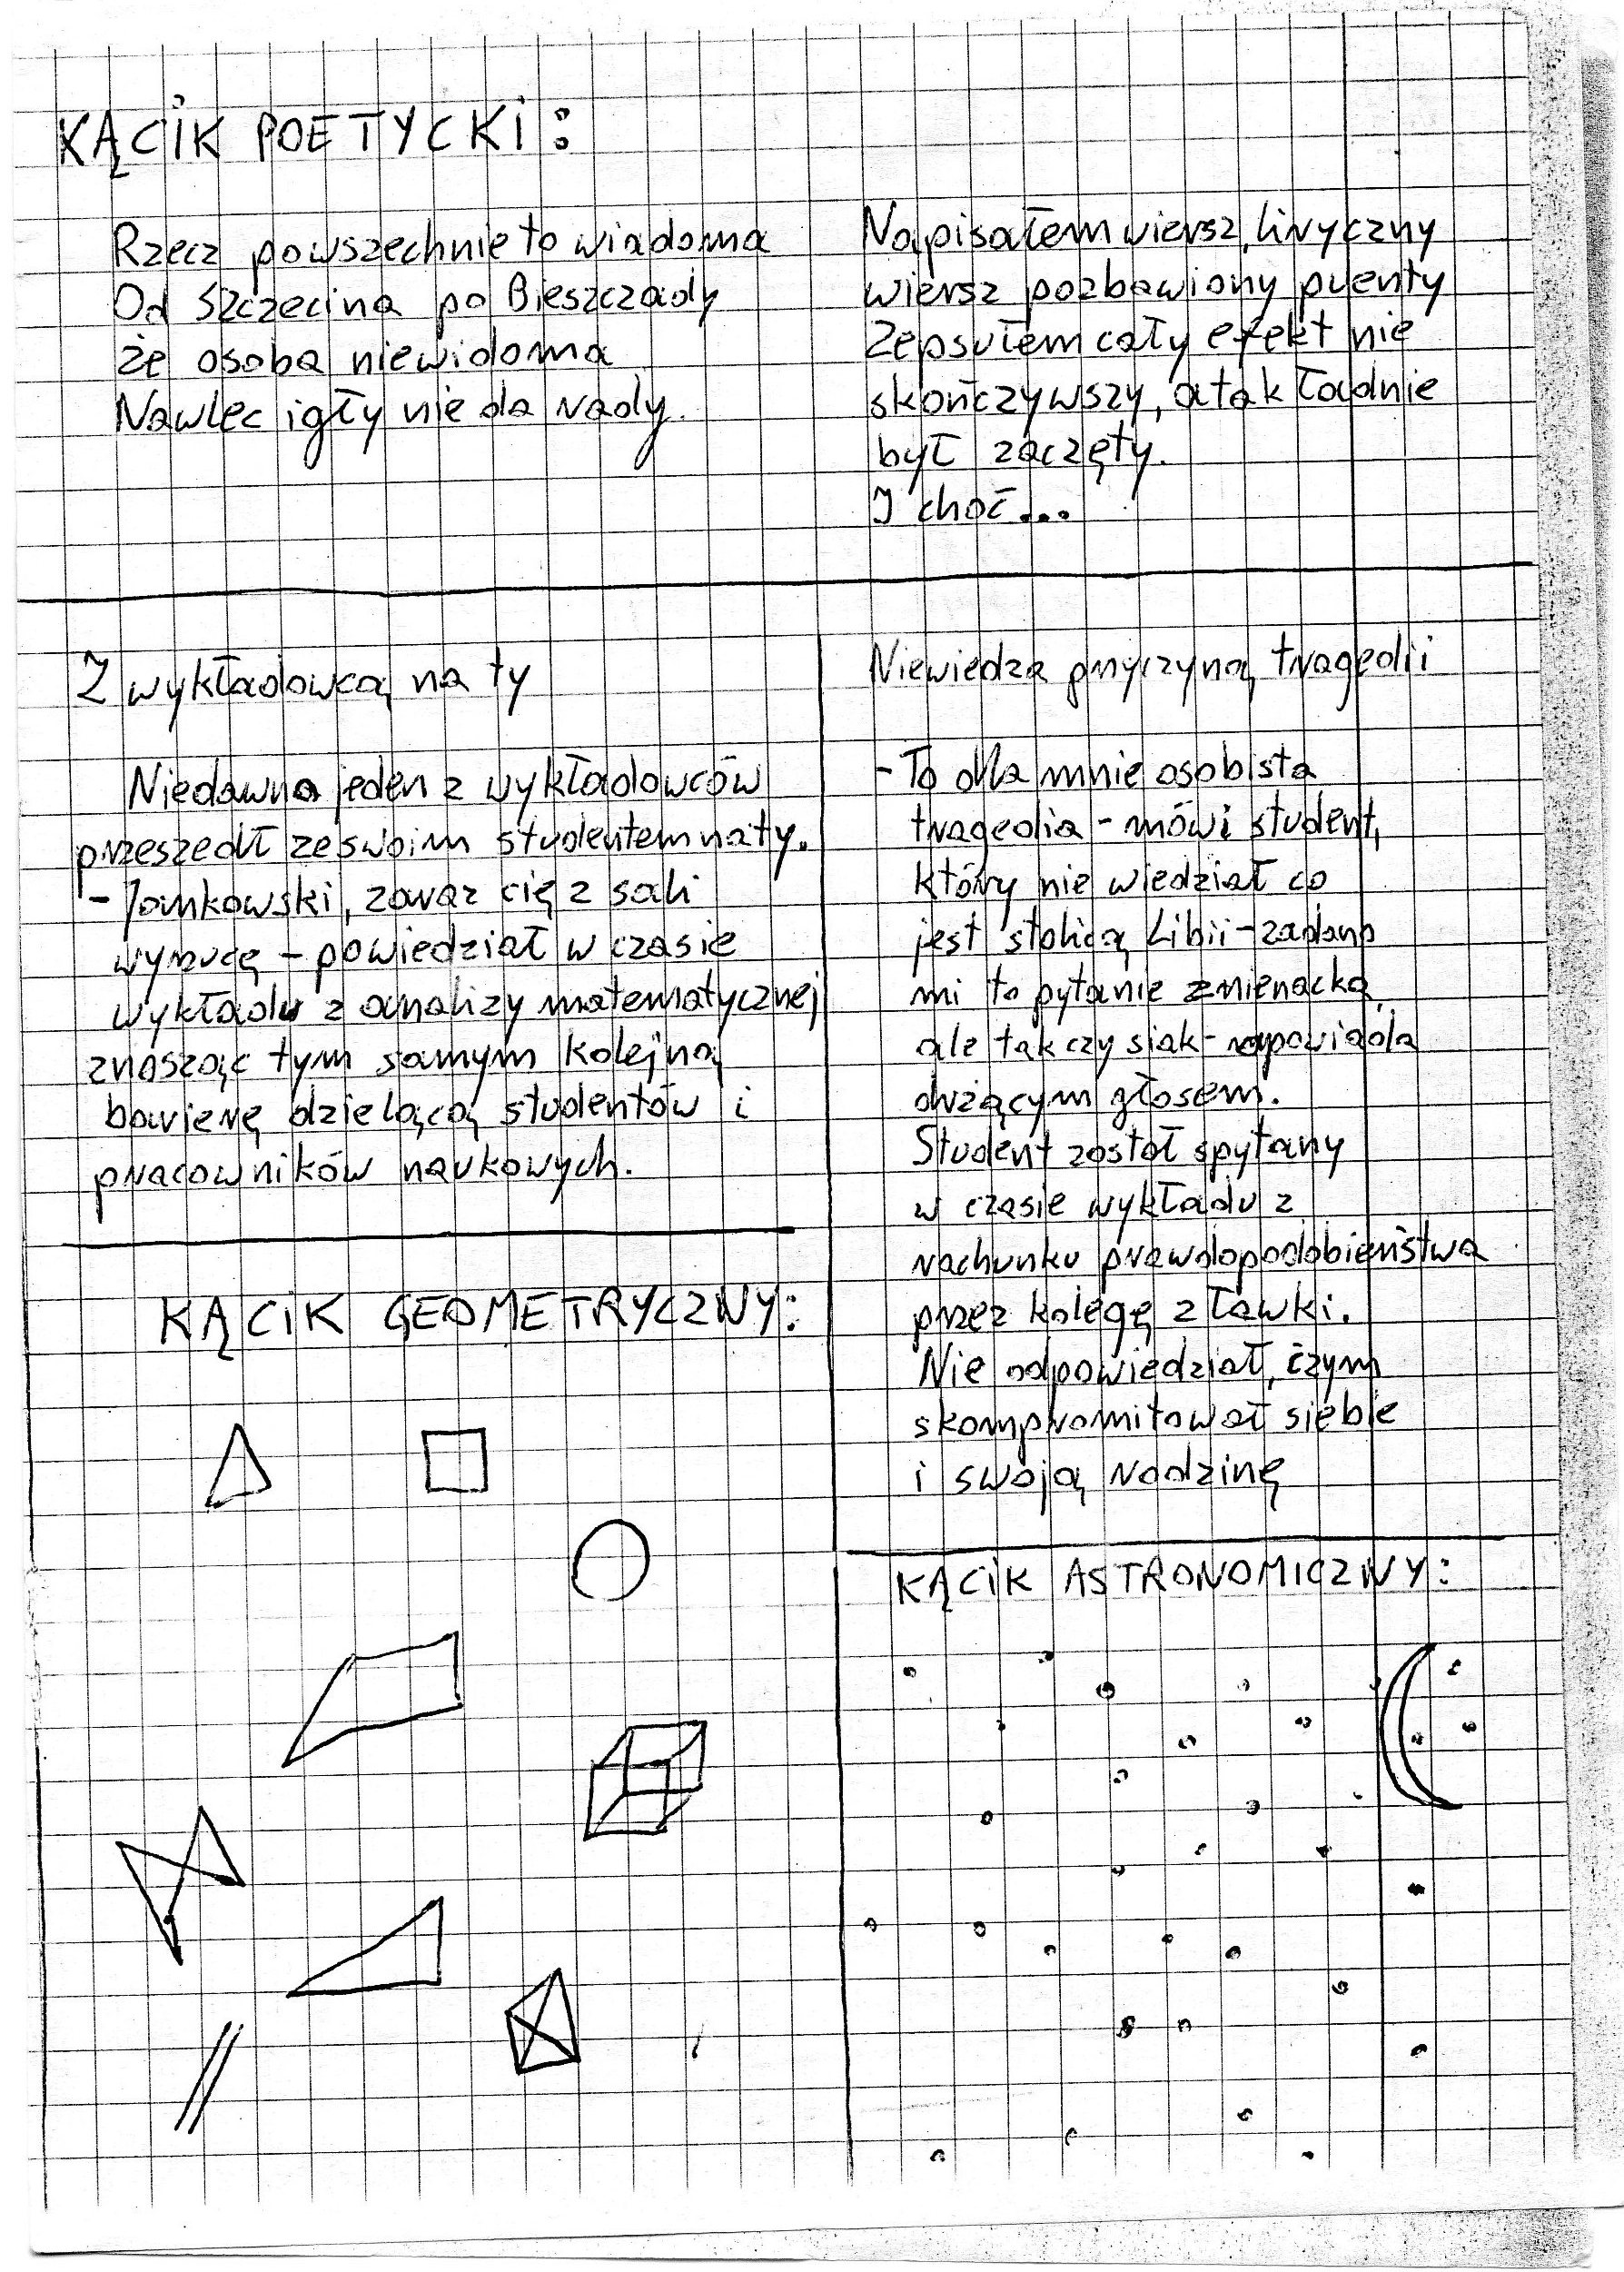 KĄCIK POETYCKI:
Rzecz powszechnie to wiadoma
Od Szczecina po Bieszczady
że osoba niewidoma
Nawlec igły nie da rady.
Napisałem wiersz, liryczny
wiersz pozbawiony puenty
Zepsułem cały efekt nie
skończywszy, a tak ładnie
był zaczęty.
I choć...
Z wykładowcą na ty
Niedawno jeden z wykładowców
przeszedł ze swoim studentem na ty.
- Jankowski, zaraz cię z sali
wyrzucę - powiedział w czasie
wykładu z analizy matematycznej
znosząc tym samym kolejną
barierę dzielącą studentów i
pracowników naukowych.
KĄCIK GEOMETRYCZNY:
Niewiedza przyczyną tragedii
- To dla mnie osobista
tragedia - mówi student,
który nie wiedział co
jest stolicą Libii - zadano
mi to pytanie znienacka,
ale tak czy siak -
drżącym głosem.
Student został spytany
w czasie wykładu z
rachunku prawdopodobieństwa
przez kolegę z ławki.
Nie odpowiedział, czym
skompromitował siebie
i swoją rodzinę
KĄCIK ASTRONOMICZNY: